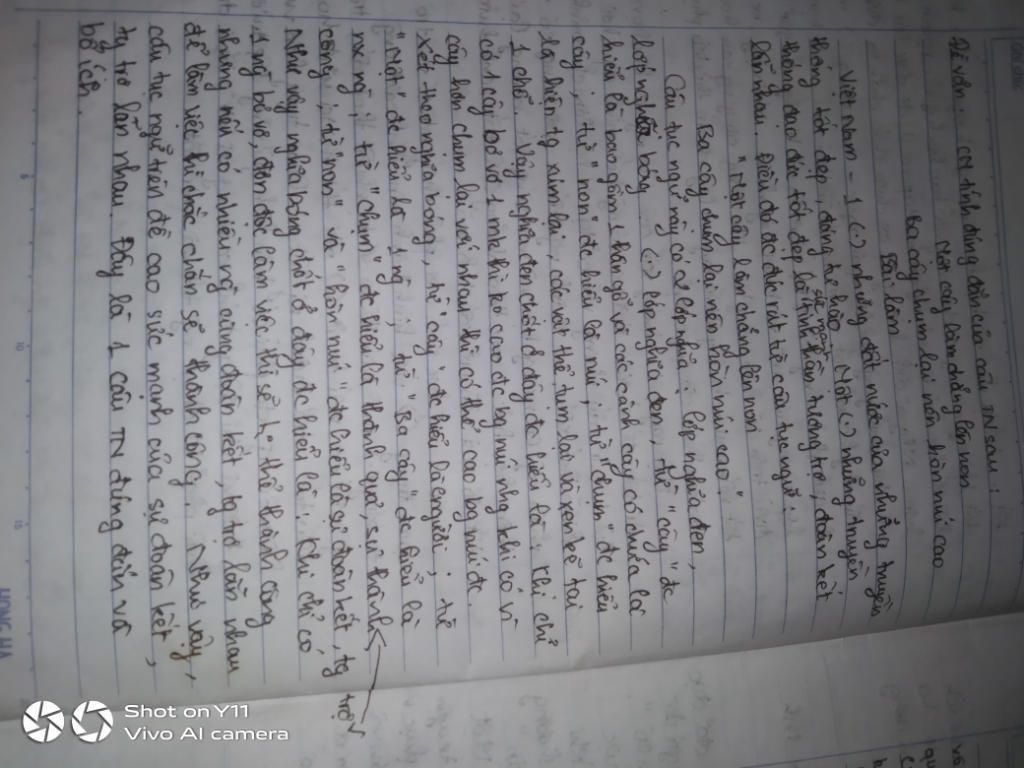 Đề văn: CM tính đúng đắn của câu TN sau:
Một cây làm chẳng lên non
Ba cây chụm lại nên hòn núi cao
Bài làm
Việt Nam - 1 (.) những đất nước của những truyền
thống tốt đẹp, đáng tự hào. Một (.) những truyền
thống đạo đức tốt đẹp là tinh thần tương trợ, đoàn kết
lẫn nhau. Điều đó đc đúc rút từ câu tục ngữ:
"Một cây làm chẳng lên non
Ba cây chụm lại nên hòn núi cao"
Câu tục ngữ này có 2 lớp nghĩa: lớp nghĩa đen,
lớp nghĩa bóng. (.) lớp nghĩa đen, từ "cây" đc
hiểu là bao gồm 1 thân gỗ và các cành cây có chứa lá
cây, từ "non" đc hiểu là núi, từ "chụm" đc hiểu
là hiện tg túm lại, các vật thể túm lại và xen kẽ tại
1 chỗ. Vậy nghĩa đen chốt ở đây đc hiểu là: Khi chỉ
có 1 cây bơ vơ 1 mk thì ko cao đc bg núi nhg khi có
cây hơn chụm lại với nhau thì có thể cao bg núi đc.
Xét theo nghĩa bóng, từ "cây" đc hiểu là con người; từ
"Một" đc hiểu là 1 ng; từ "Ba cây" đc hiểu là
nx ng; từ "chụm" đc hiểu là thành quả, sự thành
công; từ "non" và "hòn núi" đc hiểu là sự đoàn kết, tg trợ
Như vậy nghĩa bóng chốt ở đây đc hiểu là: Khi chỉ có
1 ng bơ vơ, đơn độc làm việc thì sẽ ko thể thành công
nhưng nếu có nhiều ng cùng đoàn kết, tg trợ lẫn nhau
để làm việc thì chắc chắn sẽ thành công. Như vậy,
câu tục ngữ trên đề cao sức mạnh của sự đoàn kết,
tg trợ lẫn nhau. Đây là 1 câu TN đúng đắn và
bổ ích.
HONG HA
Shot on Y11
Vivo AI camera